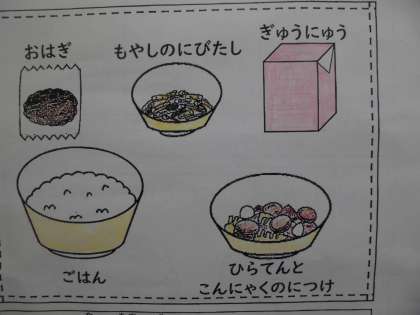 おはぎ
もやしのにびたし
ぎゅうにゅう
ごはん
ひらてんと
こんにゃくのにつけ